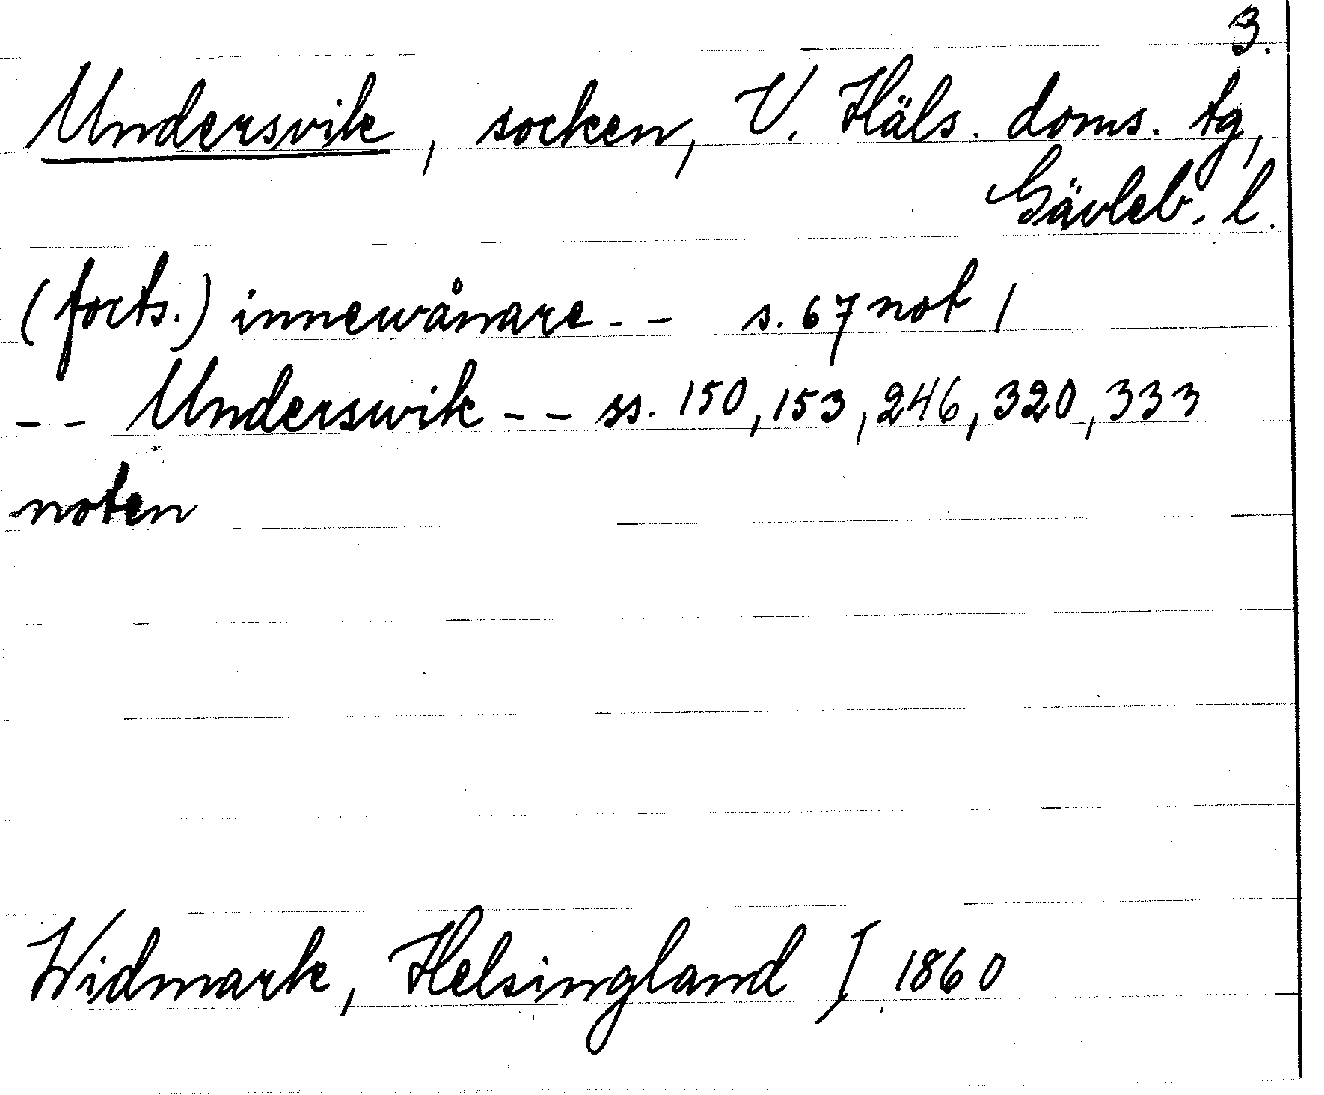 3.
Undersvik, socken, V. Häls. doms. tg,
Gävleb. l.
(forts.) innewånare - - s. 67 not 1
- - Underswik - - ss. 150, 153, 246, 320, 333
noten
Widmark, Helsingland I 1860